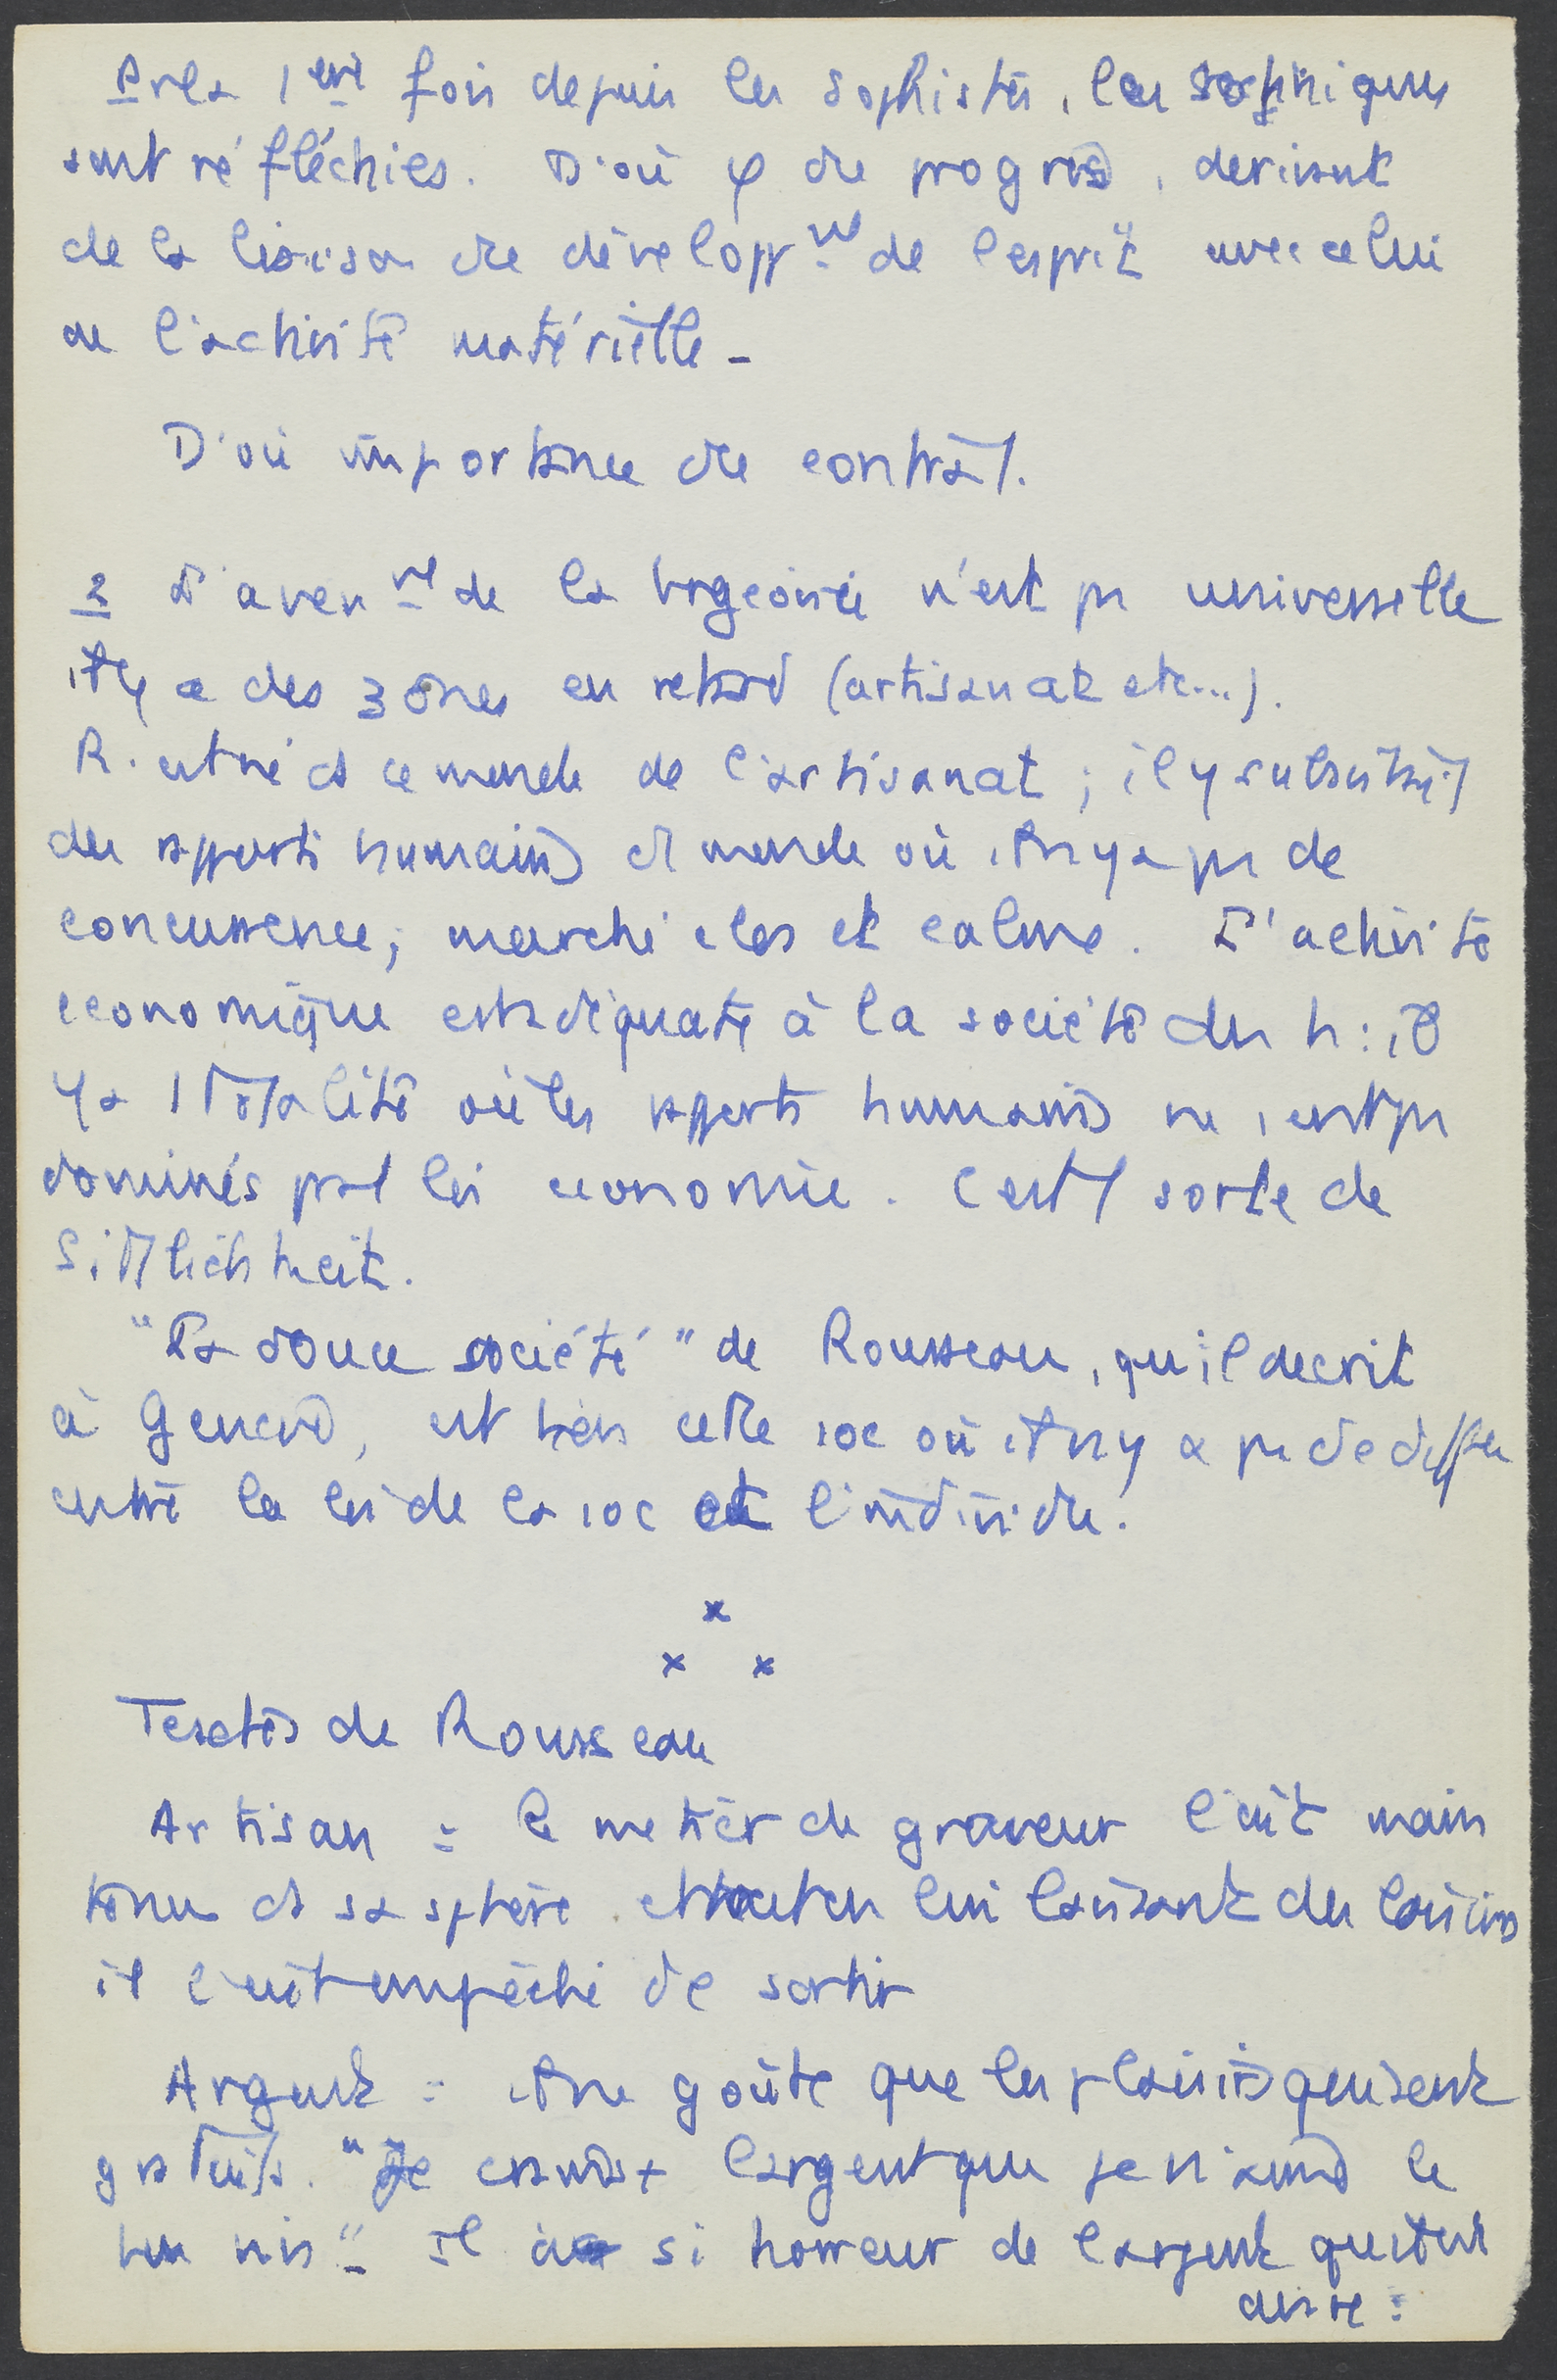 Pr la 1ere fois depuis les sophistes, les techniques
sont réfléchies. D'où φ du progrès, derivant
de la liaison du développnt de l'esprit avec celui
de l'activité matérielle -
D'où importance du contrat.
2 L'avennt de la brgeoisie n'est pas universelle
il y a des zones en retard (artisanat etc...).
R. est né ds ce monde de l'artisanat ; il y subsistait
des rapports humains ds monde où il n'y a pas de
concurrence ; marché clos et calme. L'activité
economique est adéquate à la société des h : il
y a 1 totalité où les rapports humains ne sont pas
dominés par les economie. C'est 1 sorte de
Sittlichkeit.
"La douce société" de Rousseau, qu'il decrit
à Genève, est bien cette soc où il n'y a pas de differ
entre la loi de la soc et l'individu.
x
x x
Textes de Rousseau
Artisan : le metier de graveur l'eût main
tenu ds sa sphère et tout en lui laissant des loisirs
il l'eût empêché de sortir
Argent : il ne goûte que les plaisirs qui sont
gratuits. "Je crains + l'argent que je n'aime le
bon vin" - Il a si horreur de l'argent qu'il
desire :